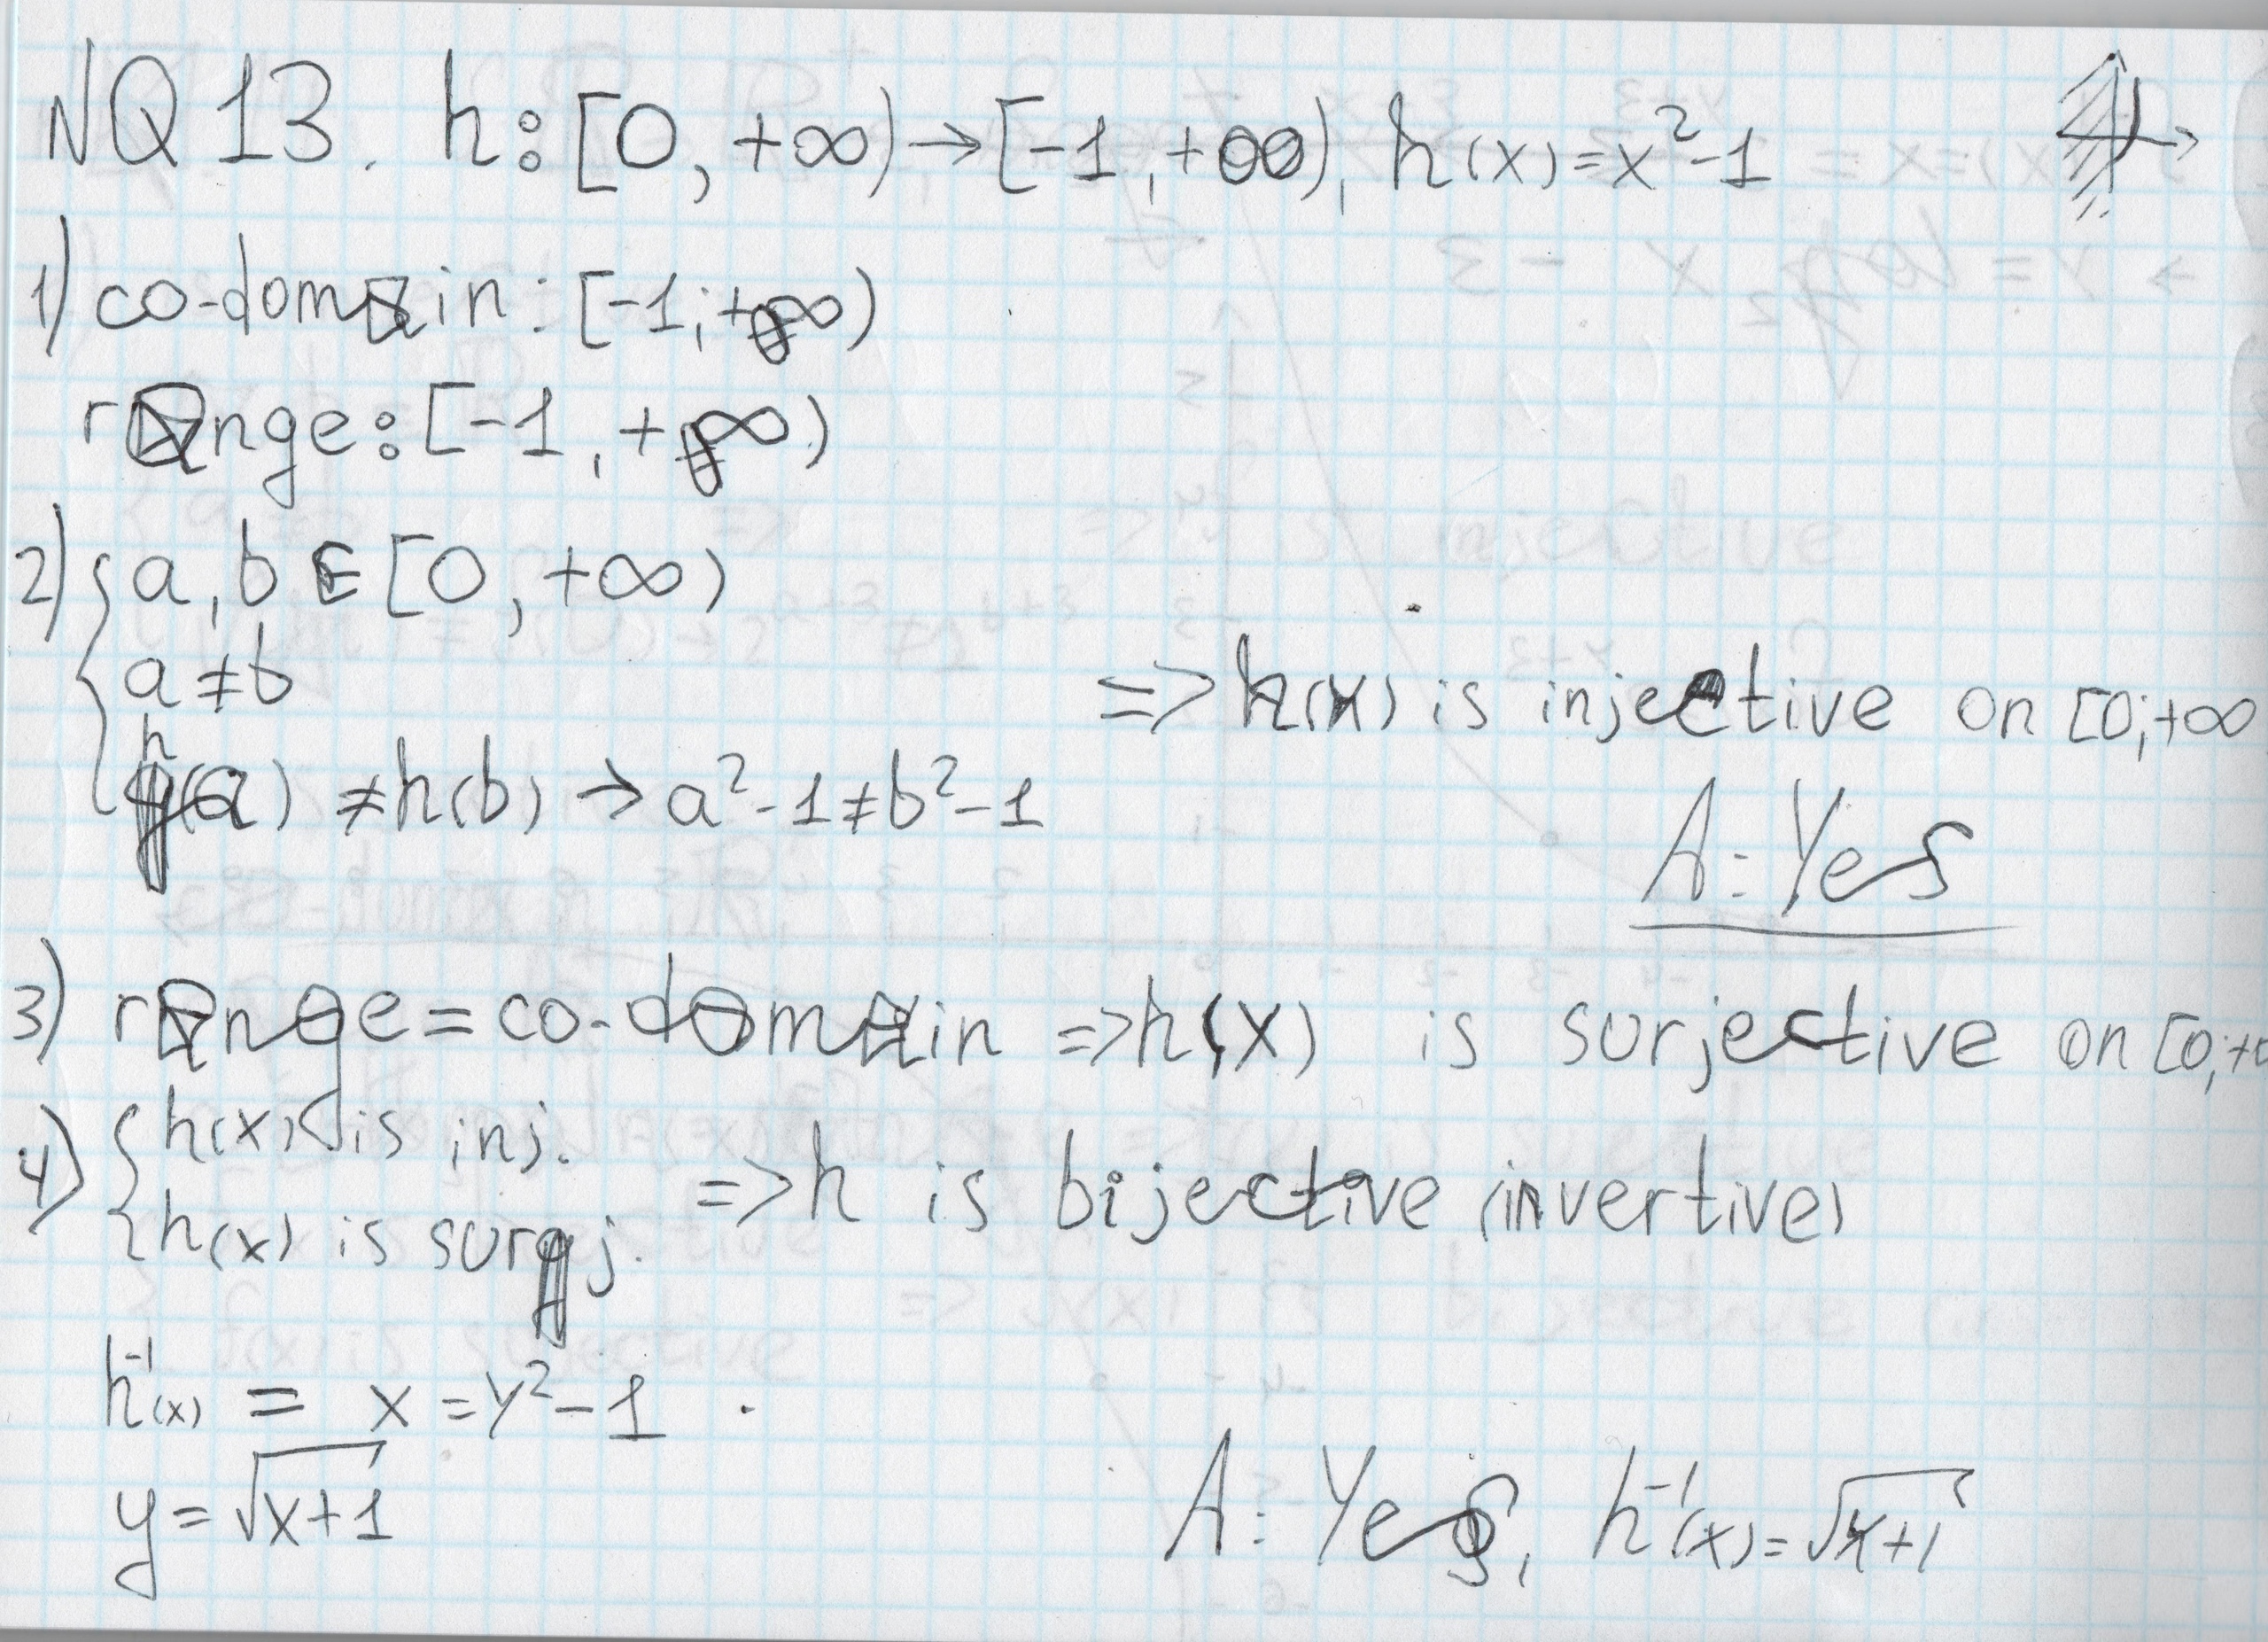 NQ 13. h: [0, +∞) → [-1, +∞), h(x) = x²-1
1) co-domain: [-1; +∞)
range: [-1, +∞)
2) { a, b ∈ [0, +∞)
a ≠ b
h(a) ≠ h(b) → a²-1 ≠ b²-1
=> h(x) is injective on [0; +∞
A: Yes
3) range = co-domain => h(x) is surjective on [0; +
4) { h(x) is inj.
h(x) is surj.
=> h is bijective (invertive)
h⁻¹(x) = x = y²-1
y = √x+1
A: Yes, h⁻¹(x) = √x+1